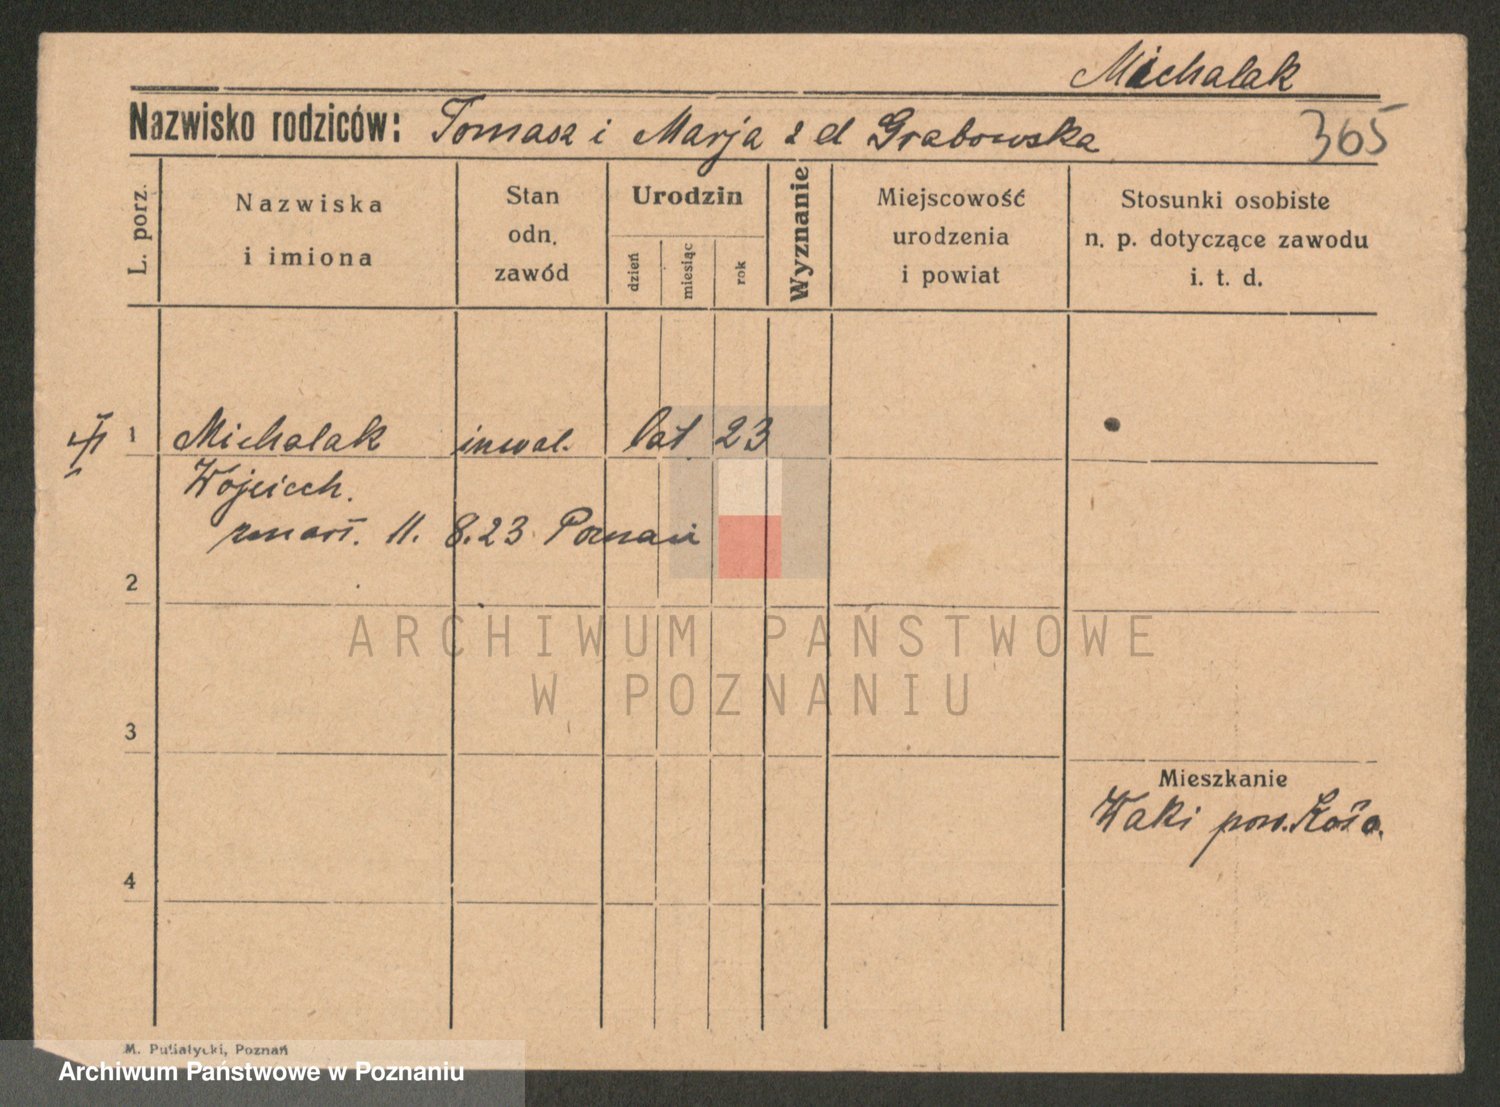 Michalak
Nazwisko rodziców: Tomasz i Marja z d Grabowska
365
L. porz.
Nazwiska
i imiona
Stan
odn.
zawód
Urodzin
dzień
miesiąc
rok
Wyznanie
Miejscowość
urodzenia
i powiat
Stosunki osobiste
n. p. dotyczące zawodu
i. t. d.
1 Michalak inwal. lat 23
Wojciech.
zmarł. 11. 8.23 Poznań
2
ARCHIWUM PAŃSTWOWE
W POZNANIU
3
Mieszkanie
Waki pow.
4
M. Putiatycki, Poznań
Archiwum Państwowe w Poznaniu